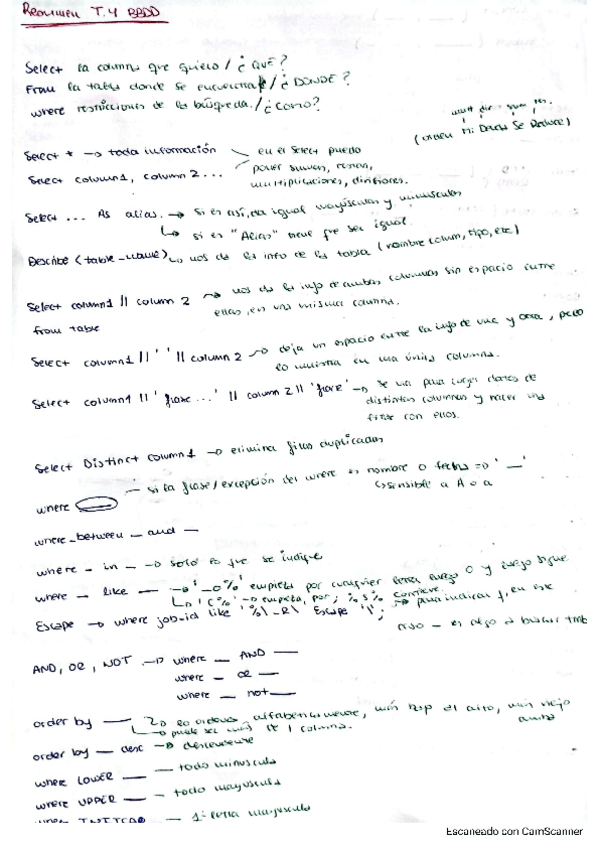 Resumen T.4 BBDD
Select la columna que quiero / ¿QUÉ?
From la tabla donde se encuentra / ¿DÓNDE?
where restricciones de la búsqueda / ¿Cómo?
mult div suma res.
(orden Mi Dewer Se Reduce)
Select * → toda información
en el Select puedo
Select column1, column2...
poner sumas, restas,
multiplicaciones, divisiones.
Select ... As alias. → si es así, da igual mayúsculas y minúsculas
↳ si es "Alias" tiene que ser igual.
Describe (table_name) ↳ nos da la info de la tabla (nombre colum, tipo, etc)
Select column1 || column 2 → nos da la info de ambas columnas sin espacio entre
ellas, en una misma columna.
from table
Select column1 || ' ' || column 2 → deja un espacio entre la info de una y otra, pero
lo muestra en una única columna.
Select column1 || 'frase...' || column 2 || 'frase' → se usa para juntar datos de
distintas columnas y hacer una
frase con ellos.
Select Distinct column1 → elimina filas duplicadas
where
— si la frase/excepción del where es nombre o fecha => '__'
sensible a A o a
where_between — and —
where — in — → solo lo que se indique
where — like — → '_o%' empieza por cualquier letra luego o y luego sigue
↳ 'C%' → empieza por; %s% contiene
Escape → where job_id like '%\_R\' Escape '\'; → para indicar q en este
caso _ es algo a buscar tmb
AND, OR, NOT → where — AND —
where — or —
where — not —
order by — lo ordena alfabéticamente, más bajo al alto, más viejo
↳ puede ser más de 1 columna.
order by — desc → descendente
where LOWER — — todo minúscula
where UPPER — → todo mayúscula
where INITCAP — 1ª letra mayúscula
Escaneado con CamScanner